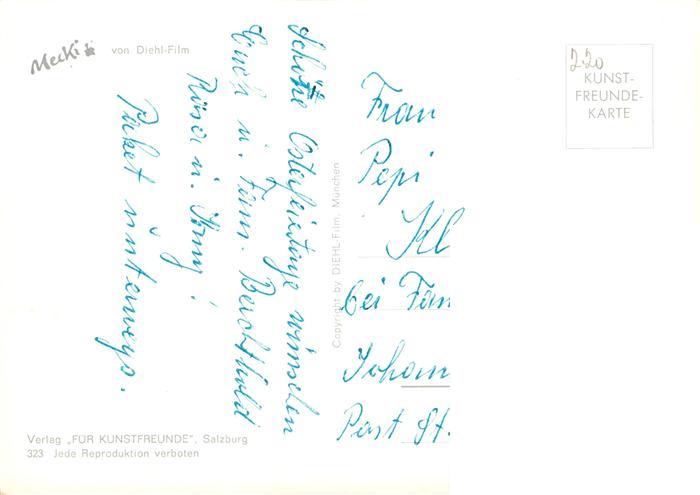 Mecki von Diehl-Film
Schöne Osterfeiertage wünschen
Euch u. Fam. Berchthold
Rosa u.
Paket unterwegs.
Verlag „FÜR KUNSTFREUNDE", Salzburg
323 Jede Reproduktion verboten
Copyright by DIEHL-Film, München
2.20
KUNST-
FREUNDE-
KARTE
Frau
Pepi
Kl
bei Fam
Johann
Post St.